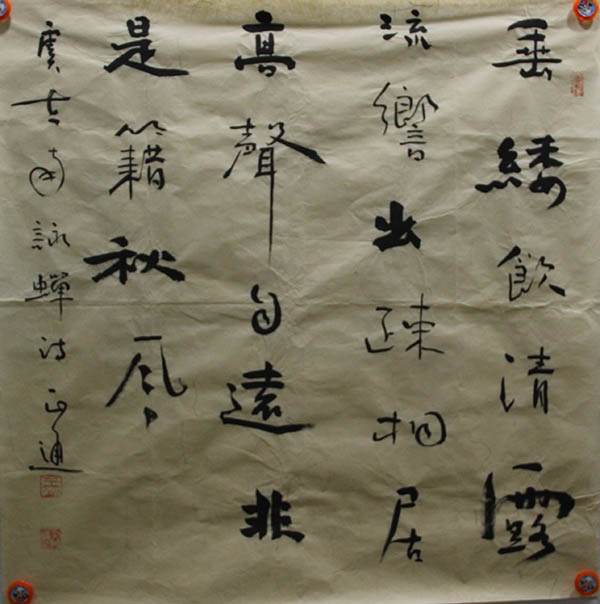 垂緌飲清露
流響出疎桐居
高聲自遠非
是籍秋風
虞世南詠蟬诗正通